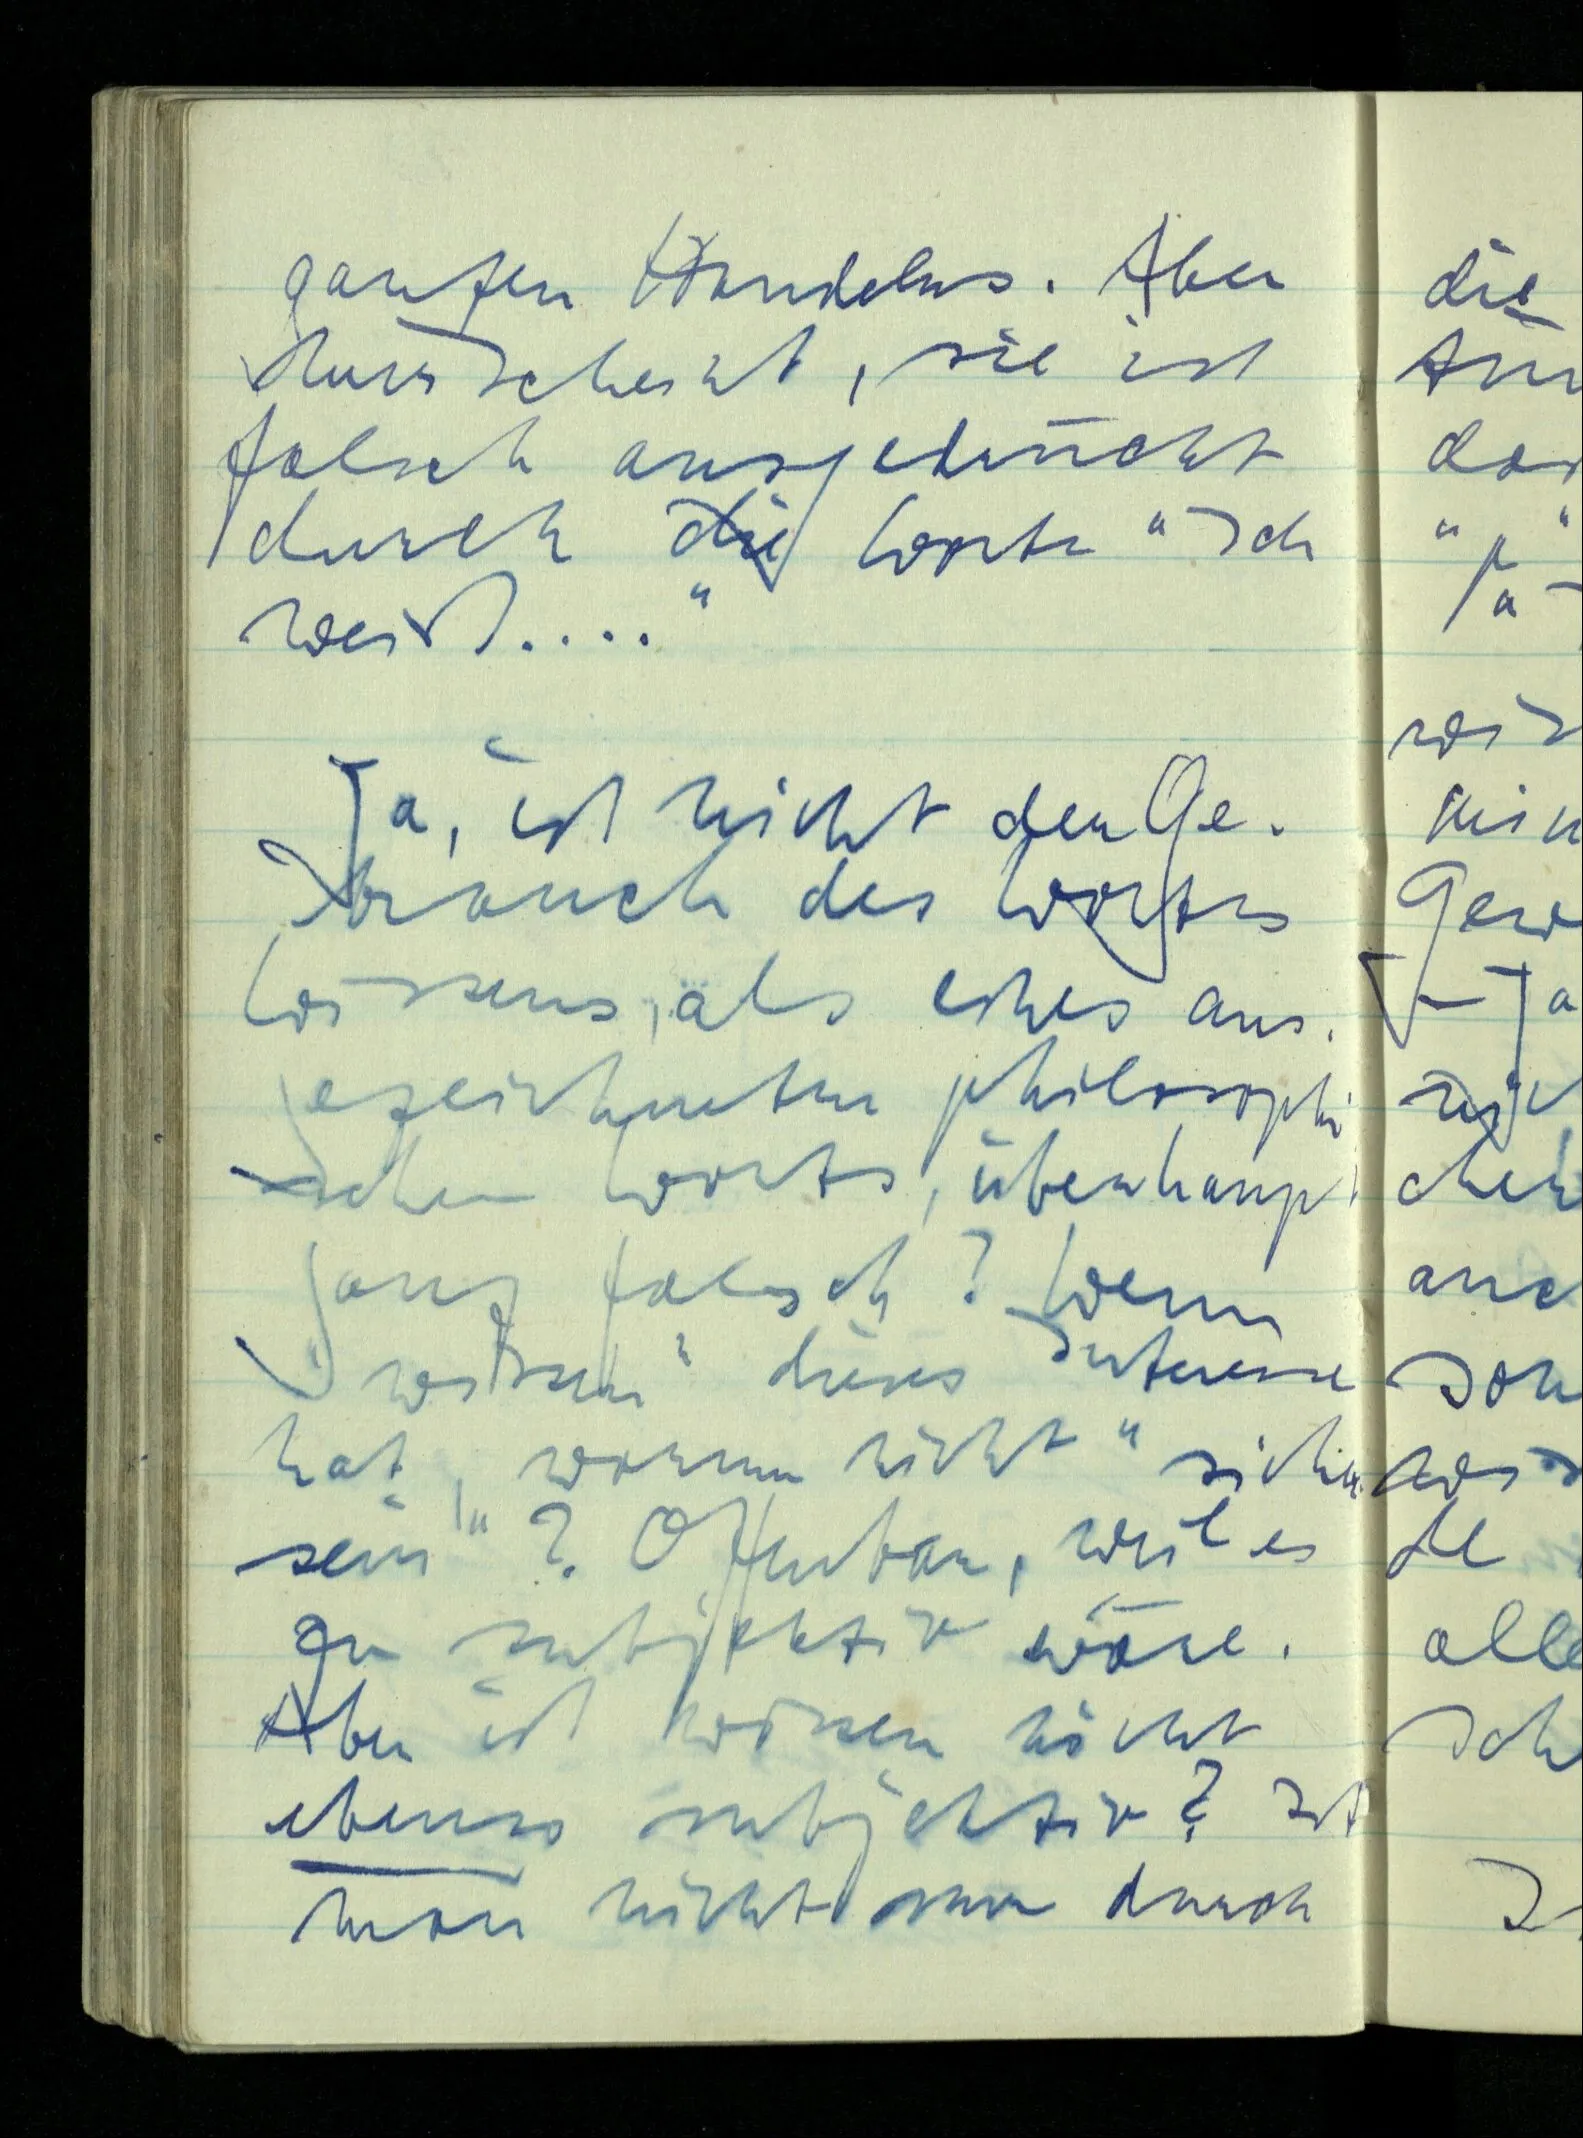 ganzen Handelns. Aber
mir scheint, sie ist
falsch ausgedrückt
durch die Worte "Ich
weiß...."
Ja, ist nicht der Ge-
brauch des Wortes
Wissens, als eines aus-
gezeichneten philosophi
schen Worts, überhaupt
ganz falsch? Wenn
"wissen" dieses Interesse
hat, warum nicht "sicher
sein"? Offenbar, weil es
zu subjektiv wäre.
Aber ist wissen nicht
ebenso subjektiv? Ist
man nicht nur durch
die
das
"p"
Ja